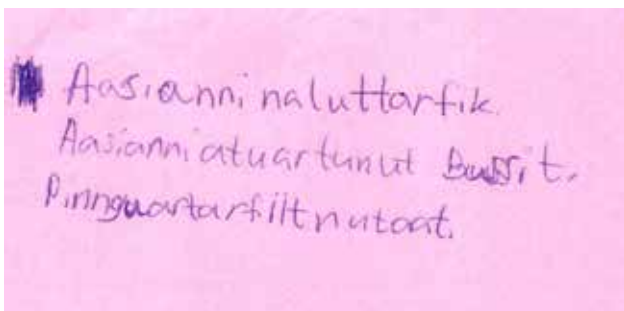 Aasianni naluttarfik.
Aasianni atuartunut Bussit.
Pinnguartarfiit nutaat.